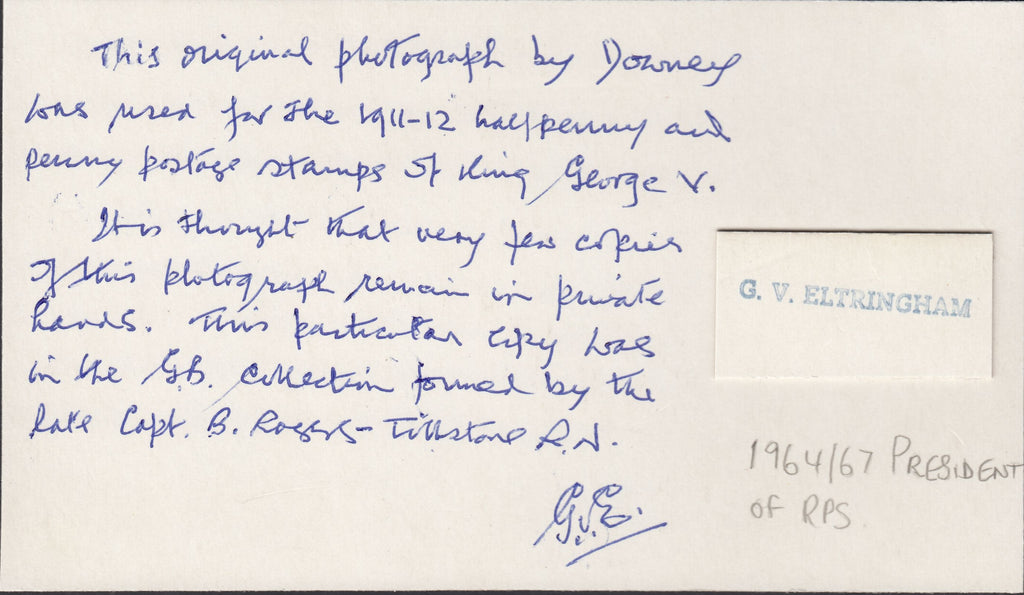 This original photograph by Downey
was used for the 1911-12 halfpenny and
penny postage stamps of King George V.
It is thought that very few copies
of this photograph remain in private
hands. This particular copy was
in the G.B. collection formed by the
late Capt. B. Rogers-Tillstone R.N.
G.V.E.
G. V. ELTRINGHAM
1964/67 PRESIDENT
OF RPS.